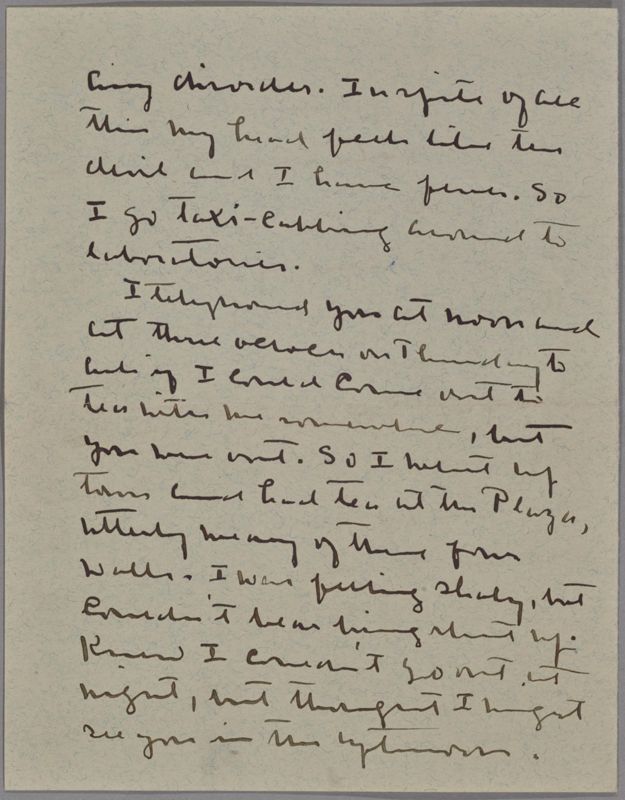 any disorder. In spite of all
this my head feels like the
devil and I have fever. So
I go taxi-cabbing around to
laboratories.
I telephoned you at noon and
at three o'clock on Thursday to
ask if I could come out to
tea with me somewhere, but
you were out. So I went up
town and had tea at the Plaza,
utterly weary of these four
walls. I was feeling shaky, but
couldn't bear being shut up.
Knew I couldn't go out at
night, but thought I might
see you in the afternoon.